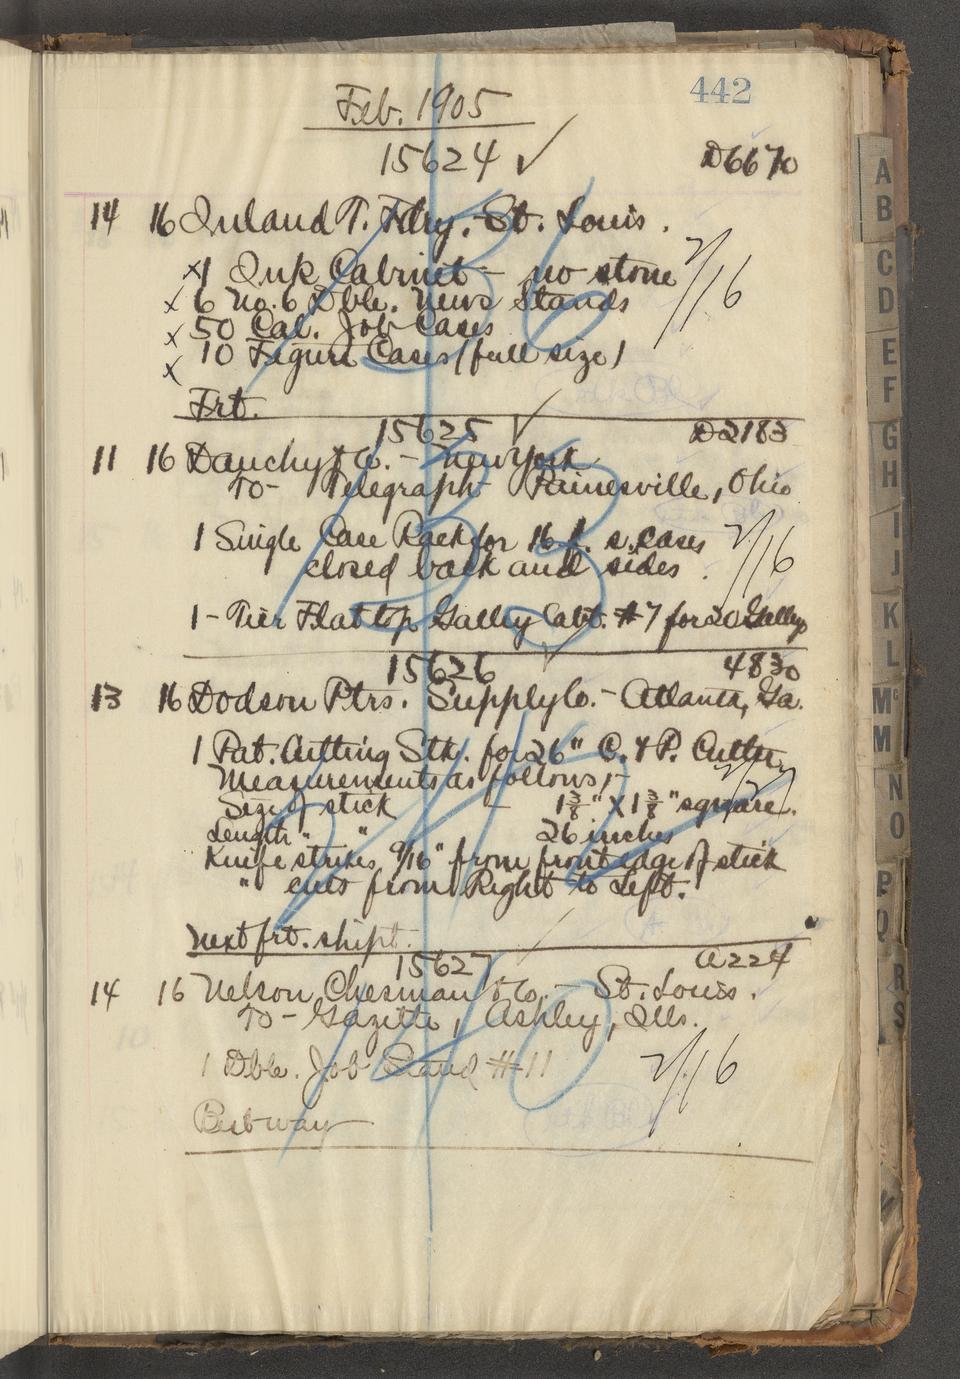 442
Feb. 1905
15624 ✓ D6670
14 16 Inland T. Fdry. St. Louis.
x 1 Ink Cabinet - no stone 2/16
x 6 No. 6 Dble. News Stands
x 50 Cal. Job Cases
x 10 Figure Cases (full size)
Frt.
15625 ✓ D2183
11 16 Dauchy & Co. - New York
To - Telegraph Painesville, Ohio
1 Single Case Rack for 16 f. s. cases 2/16
closed back and sides.
1 - Tier Flat top Galley Cabt. #7 for 20 Galleys
15626 ✓ 4830
13 16 Dodson Ptrs. Supply Co. - Atlanta, Ga.
1 Pat. Cutting Stk. for 26" C. & P. Cutter
Measurements as follows;-
Size of stick - 1 3/8" X 1 3/8" square.
Length " " 26 inches
Knife strikes 9/16" from front edge of stick
" cuts from Right to Left.
Next frt. shipt.
15627 A224
14 16 Nelson Chesman & Co. - St. Louis.
To - Gazette, Ashley, Ills.
1 Dble. Job Stand #11 2/16
Best way
A
B
C
D
E
F
G
H
I
J
K
L
Mc
M
N
O
P
Q
R
S